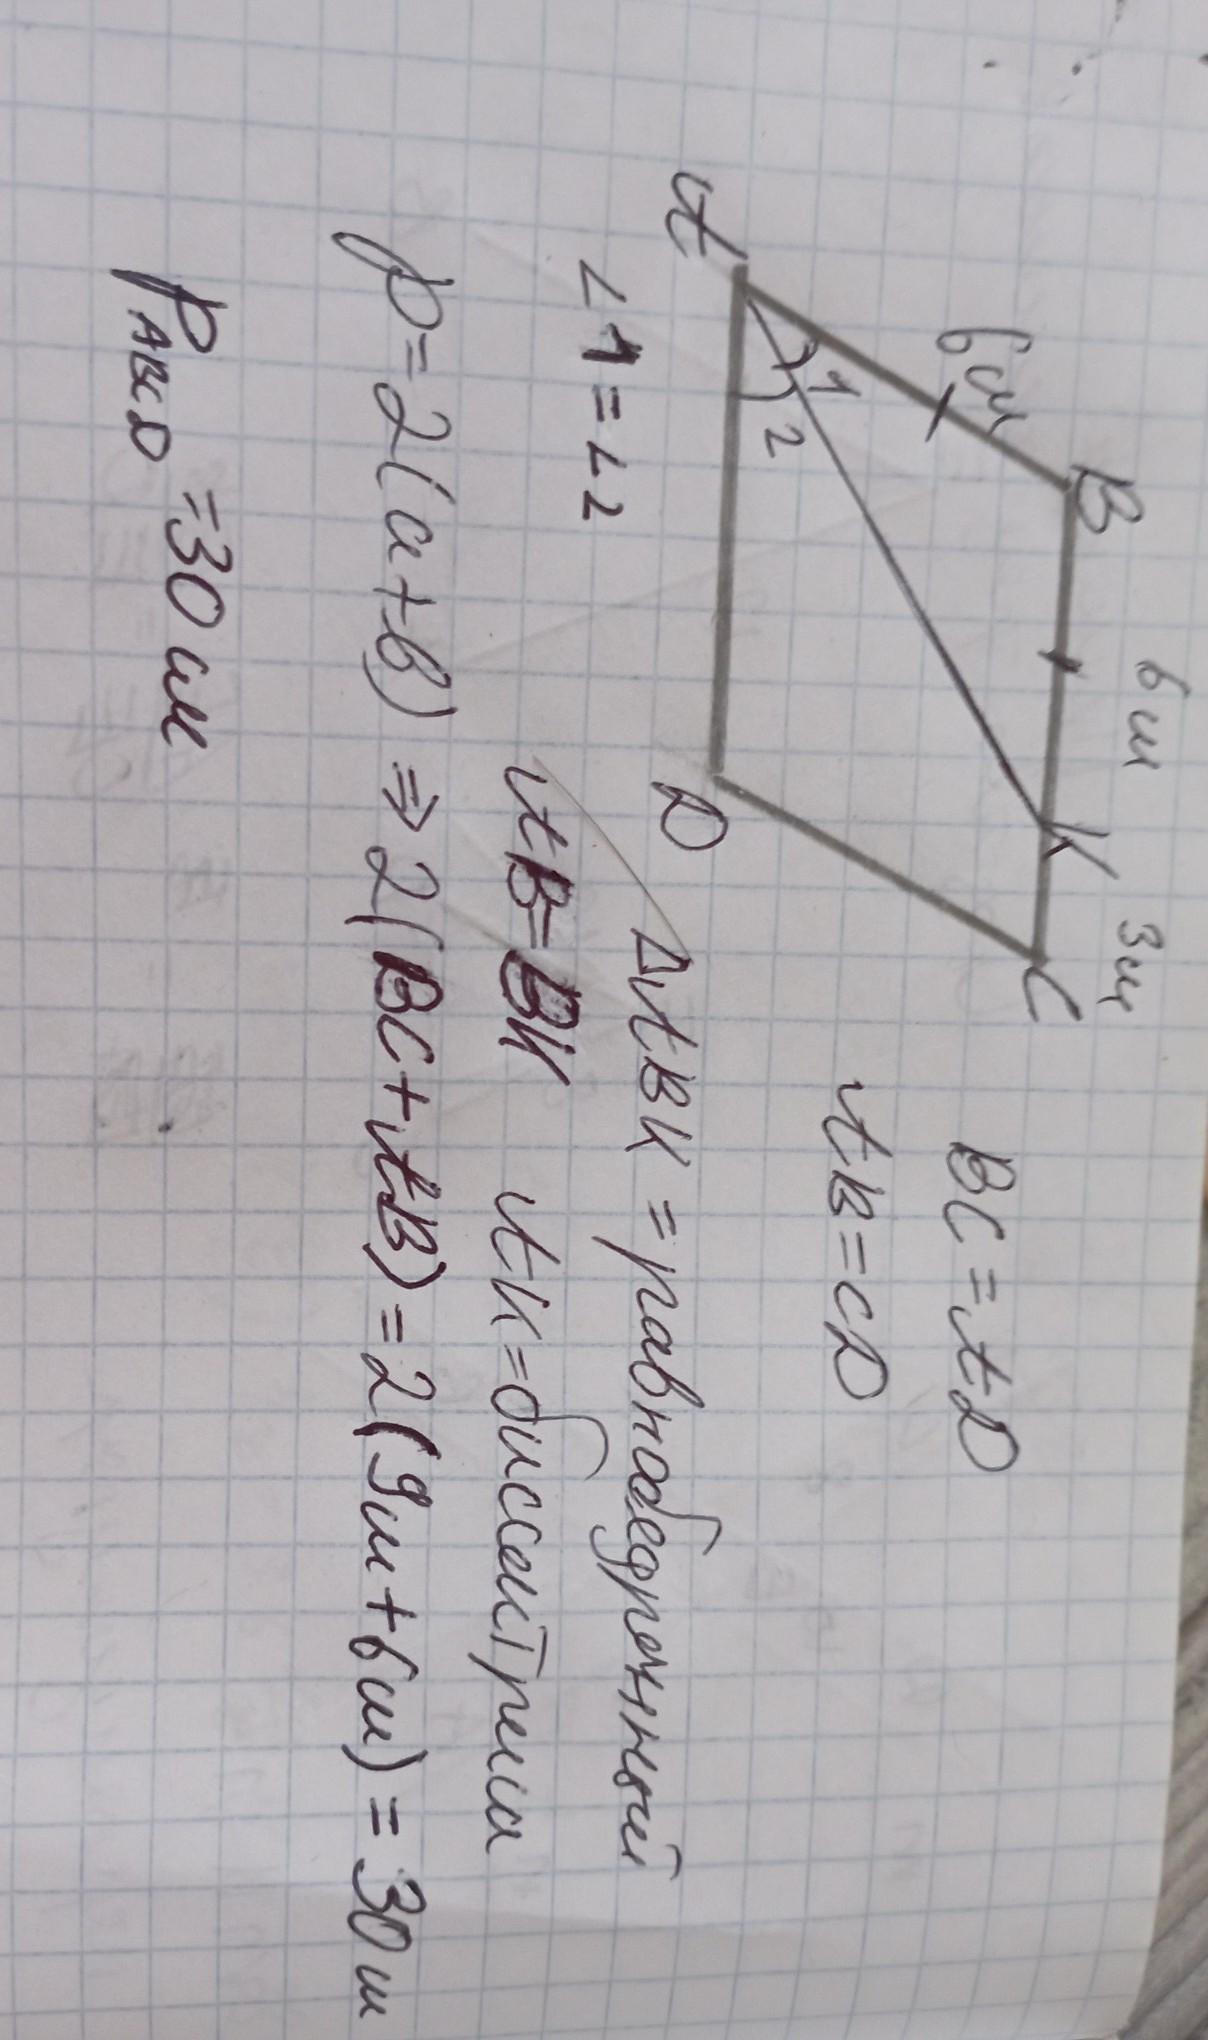 B 6см K 3см C
6см
1
2
A D
BC = AD
AB = CD
∠1 = ∠2 ΔABK = равнобедренный
AB = BK AK = биссектриса
P = 2(a+b) ⇒ 2(BC + AB) = 2(9см + 6см) = 30см
PABCD = 30 см